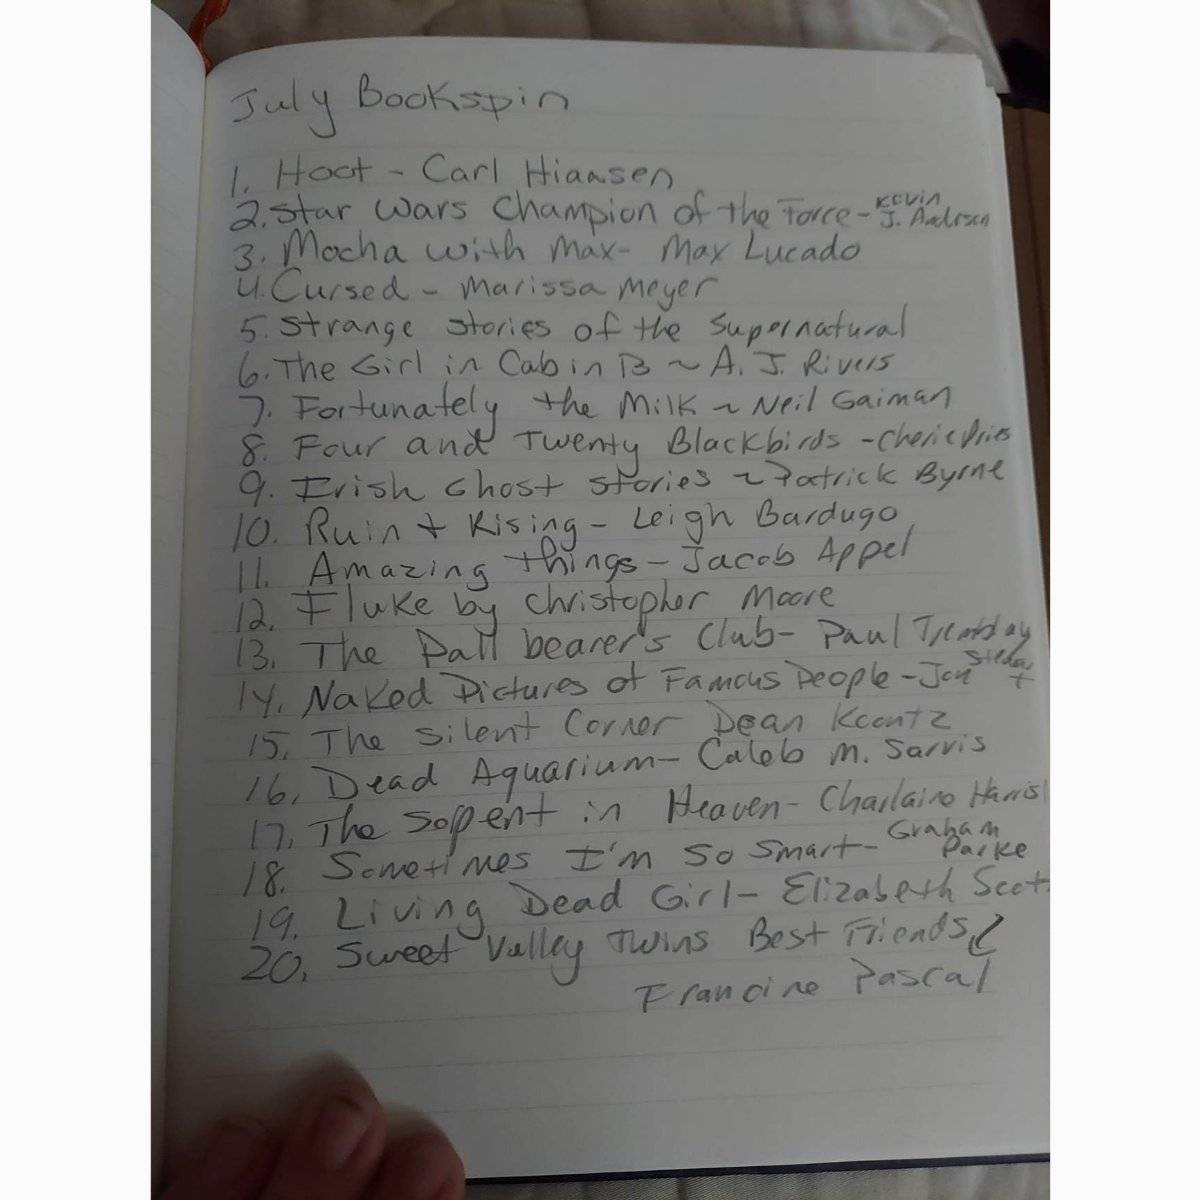 July Bookspin
1. Hoot - Carl Hiaasen
2. Star Wars Champion of the Force - Kevin J. Anderson
3. Mocha with Max - Max Lucado
4. Cursed - Marissa Meyer
5. Strange Stories of the Supernatural
6. The Girl in Cabin 13 ~ A. J. Rivers
7. Fortunately the Milk ~ Neil Gaiman
8. Four and Twenty Blackbirds - Cherie Pries
9. Irish Ghost Stories ~ Patrick Byrne
10. Ruin + Rising - Leigh Bardugo
11. Amazing things - Jacob Appel
12. Fluke by Christopher Moore
13. The Pall bearer's Club - Paul Tremblay
14. Naked Pictures of Famous People - Jon Stewart
15. The Silent Corner Dean Koontz
16. Dead Aquarium - Caleb M. Sarvis
17. The Serpent in Heaven - Charlaine Harris
18. Sometimes I'm So Smart - Graham Parke
19. Living Dead Girl - Elizabeth Scott
20. Sweet Valley Twins Best Friends
Francine Pascal